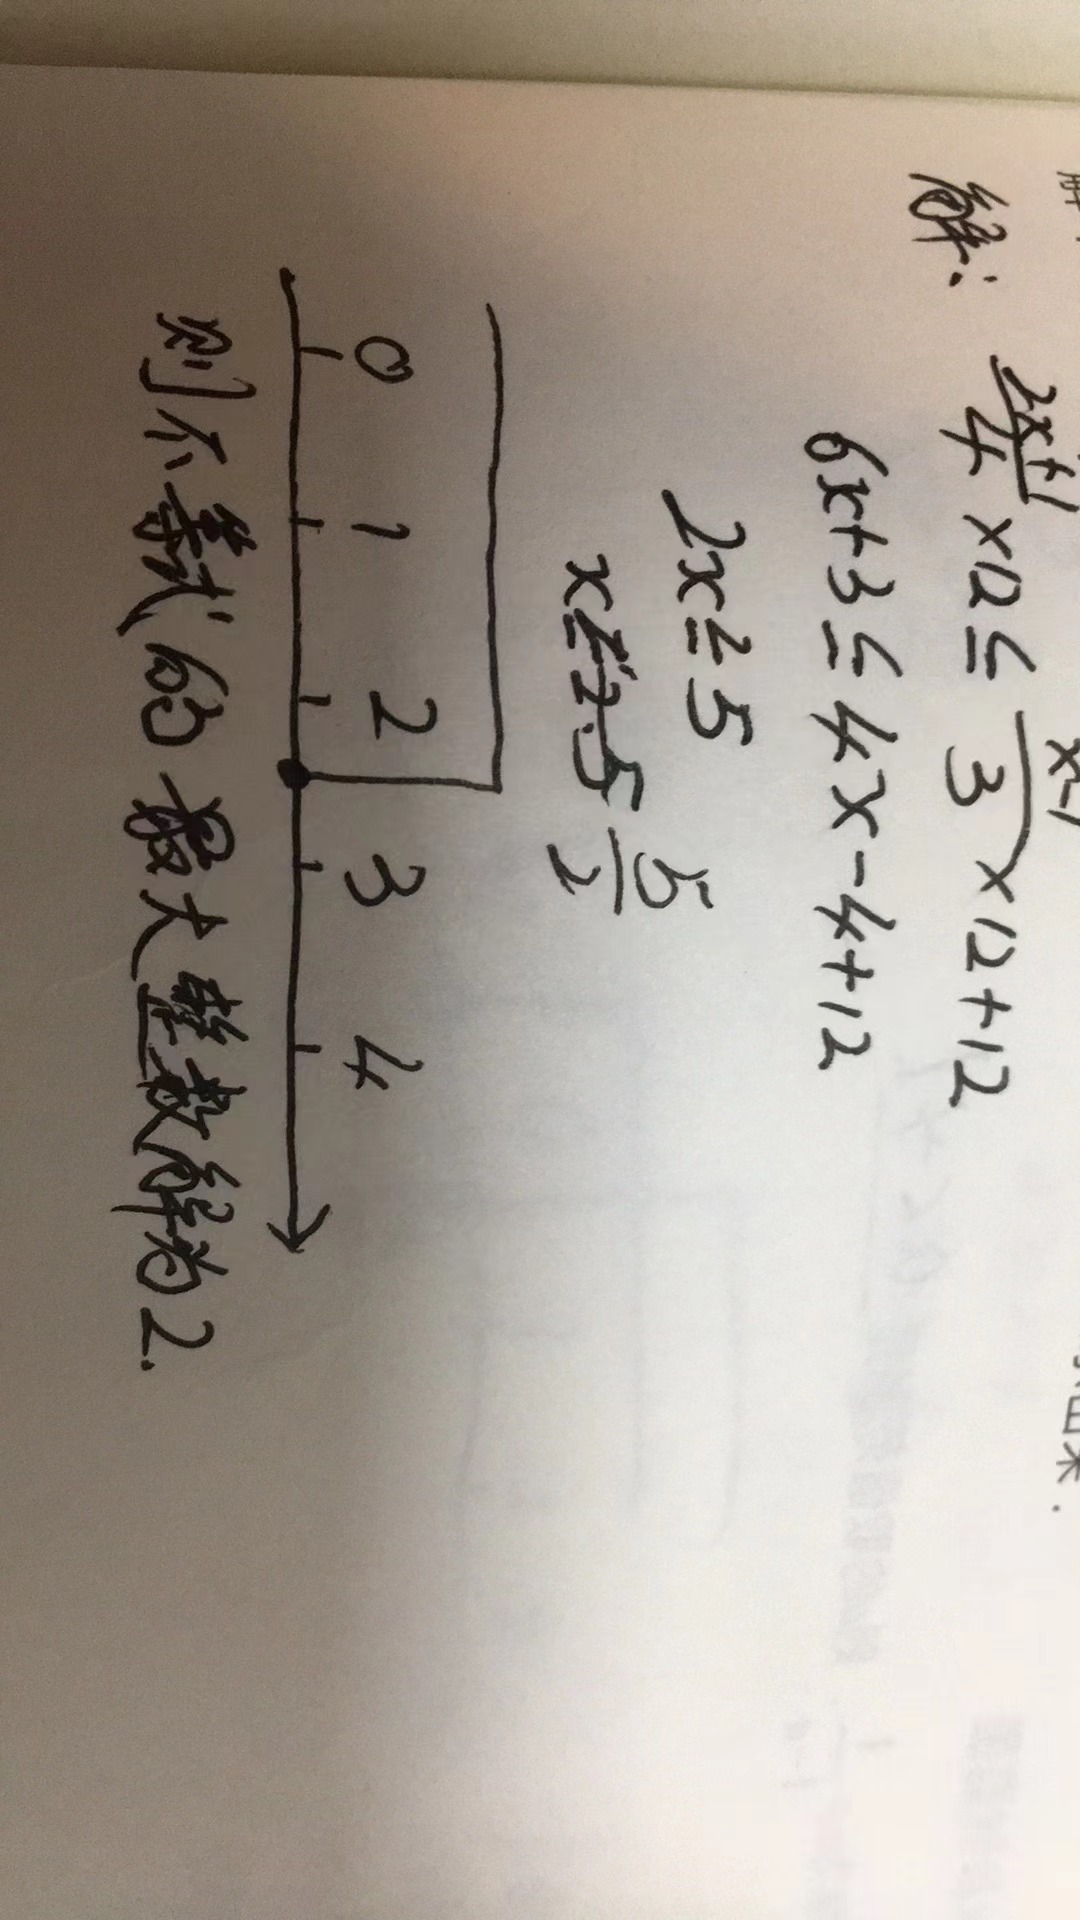 解
求出来.
x-1
解: (2x+1)/4 ×12 ≤ /3 ×12+12
6x+3 ≤ 4x-4+12
2x ≤ 5
x ≤ 2.5 5/2
0 1 2 3 4
则不等式的最大整数解为2.